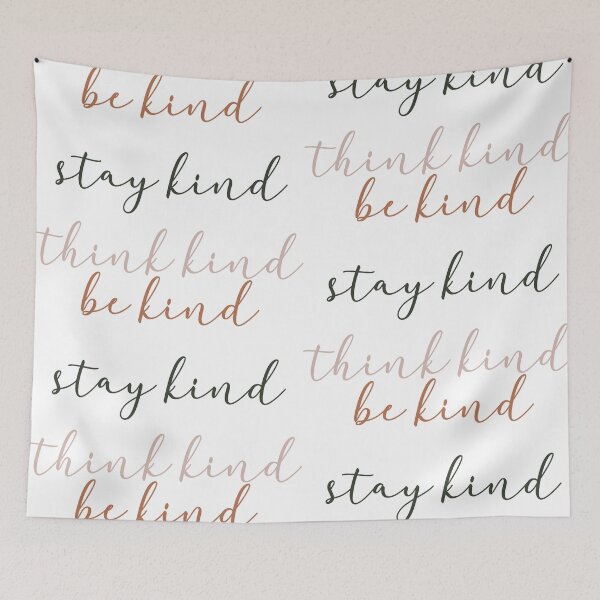 be kind
stay kind
think kind
be kind
stay kind
think kind
be kind
stay kind
think kind
be kind
stay kind
think kind
be kind
stay kind